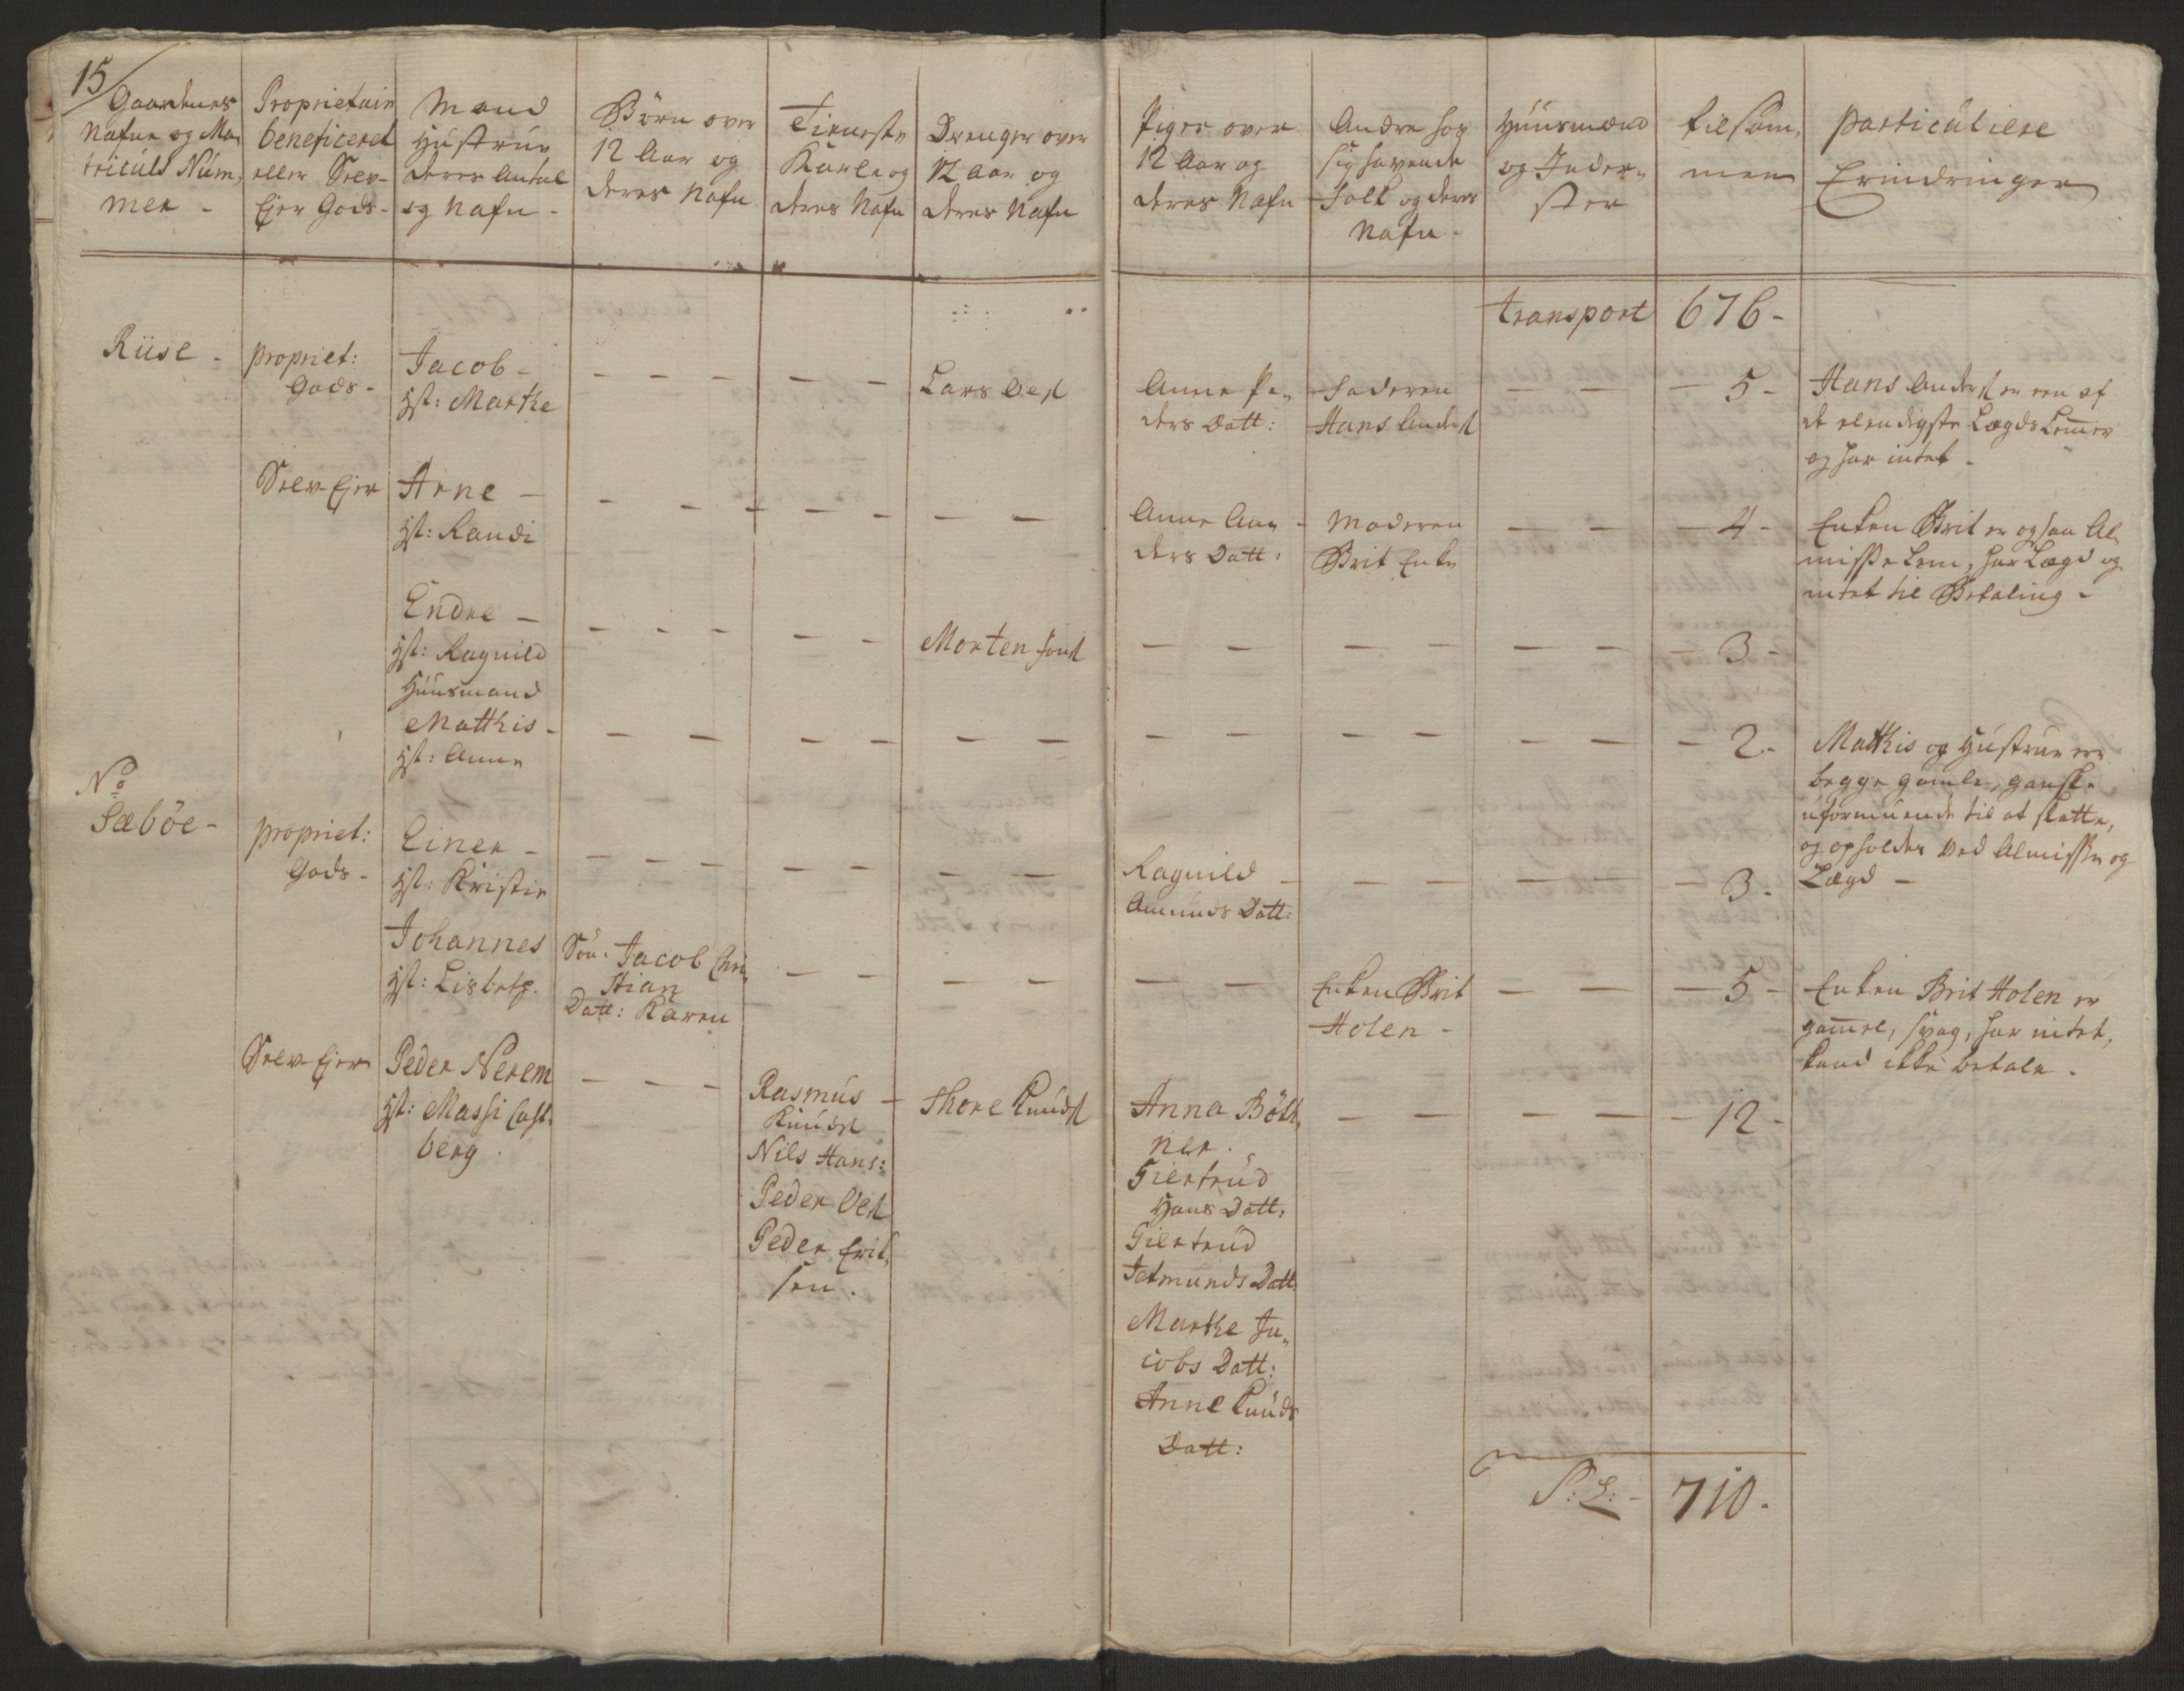 15
Gaardenes
Nafne og Ma,
triculs Num,
mer -
Proprietair
beneficeret
eller Selv-
Ejer Gods -
Mand
Hustrue
deres Antal
og Nafn -
Börn over
12 Aar og
deres Nafn
Tieneste
Karle og
deres Nafn
Drenger over
12 Aar og
deres Nafn
Piger over
12 Aar og
deres Nafn
Andre hos
sig havende
Folk og deres
Nafn -
Huusmænd
og Inder,,
ster
tilsam,
men
particuliere
Erindringer
transport 676 -
Riise - propriet:
Gods -
Jacob -
Hst: Marthe
- - - - - Lars Oels
Anne Pe,,
ders Datt:
Faderen
Hans Anders
- - - 5 -
Hans Anders er een af
de elendigste Lægds Lemer
og har intet -
Selv-Ejer Arne -
Hst: Randi
- - - - - - -
Anne An,,
ders Datt:
Moderen
Brit Enke
- - - 4 -
Enken Brit er og saa Al,
misse Lem, har Lægd og
intet til Betaling -
Endre -
Hst: Ragnild
- - - - - Morten Jons
- - - - - - - 3 -
Huusmand
Matthis -
Hst: Anne
- - - - - - - - - - - - - 2 -
Matthis og Hustrue ere
begge gamle, ganske
uformuende til at skatte,
og opholdes ved Almisse og
Lægd -
No
Sæböe - propriet:
Gods -
Einer -
Hst: Kristie
- - - - - - -
Ragnild -
Amunds Datt:
- - - - - 3 -
Johannes
Hst: Lisbeth.
Sön: Jacob Chri,
stian
Datt: Karen
- - - - - -
Enken Brit
Holen -
- - - 5 -
Enken Brit Holen er
gamel, svag, har intet,
kand ikke betale -
Selv-Ejer Peder Nerem
Hst: Massi Cast,
berg
- - - Rasmus -
Knuds
Nils Hans:
Peder Oels
Peder Erik,
sen.
Thore Knuds
Anna Böth,
ner.
Giertrud
Hans Datt:
Giertrud
Jetmunds Datt
Marthe Ja,,
cobs Datt:
Anne Knuds
Datt:
- - - - - 12 -
S: L: - 710 -